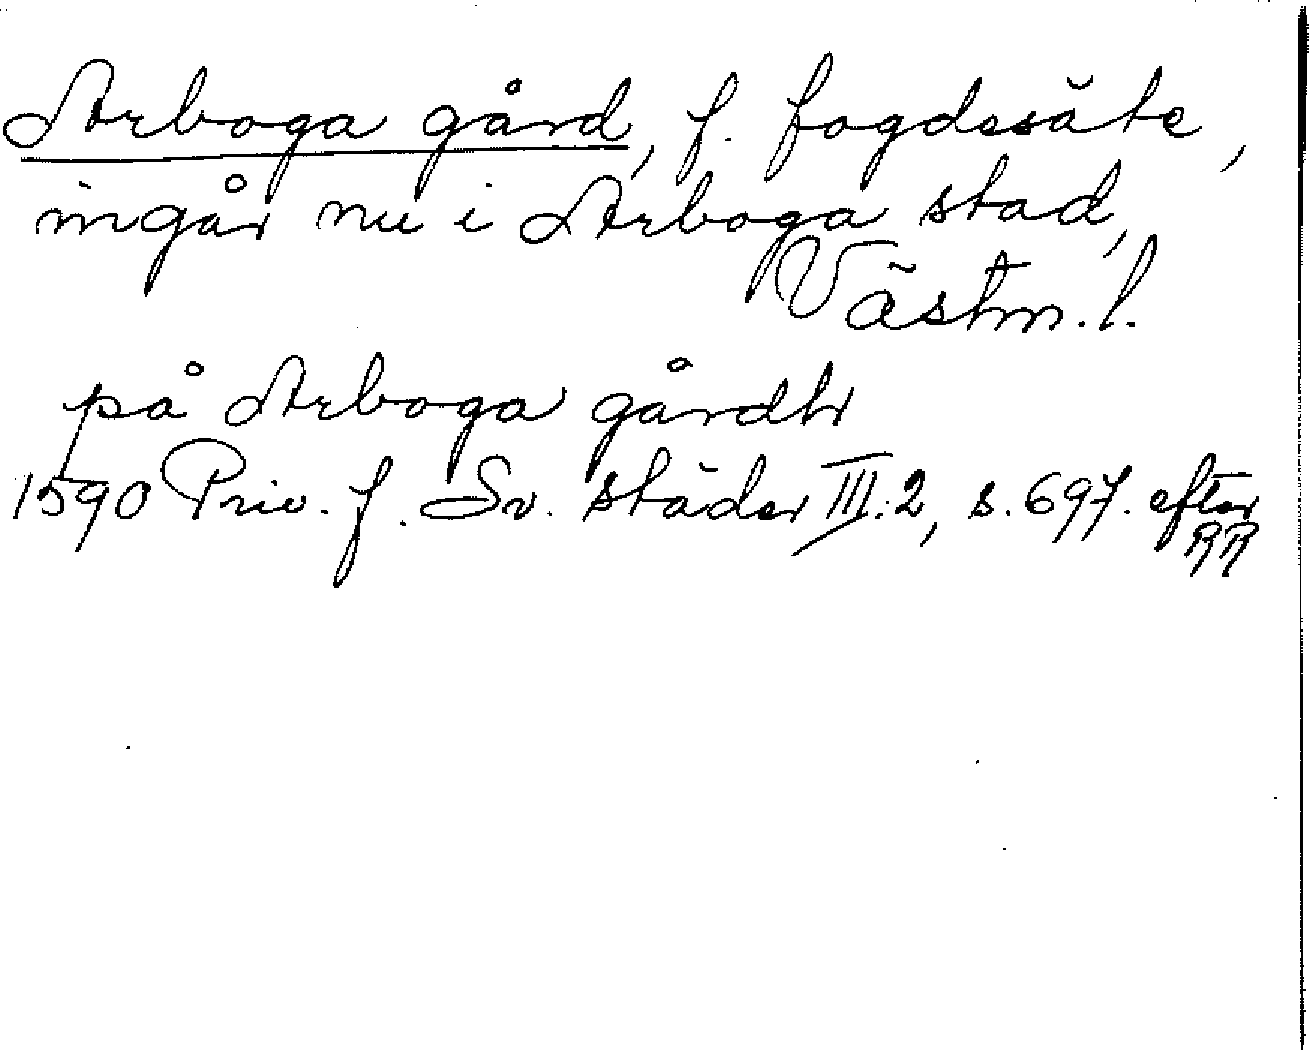 Arboga gård, f. fogdesäte,
ingår nu i Arboga stad,
Västm. l.
på Arboga gårdh
1590 Priv. f. Sv. städer III:2, s. 697. efter
RR